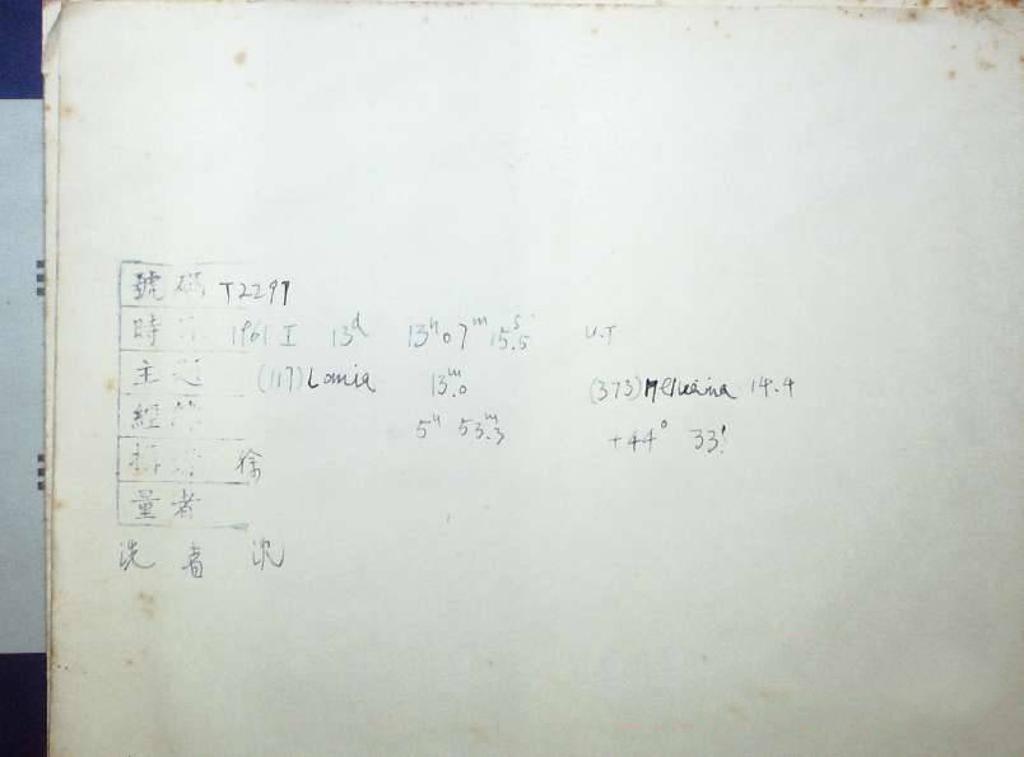 號碼 T2297
時 1961 I 13ᵈ 13ʰ07ᵐ15.ˢ5 U.T
主題 (117) Lomia 13.ᵐ0 (373) Melusina 14.4
經 5ʰ 53.ᵐ3 +44° 33.′
徐
量者
洗者 沈